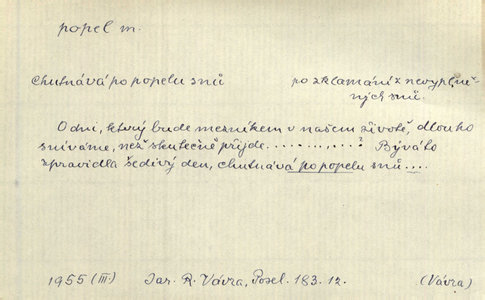 popel m.
chutnává po popelu snů
po zklamání z nevyplně-
ných snů.
O dni, který bude mezníkem v našem životě, dlouho
sníváme, než skutečně přijde..........? Bývá to
zpravidla šedivý den, chutnává po popelu snů....
1955 (III.) Jar. R. Vávra, Posel. 183.12. (Vávra)